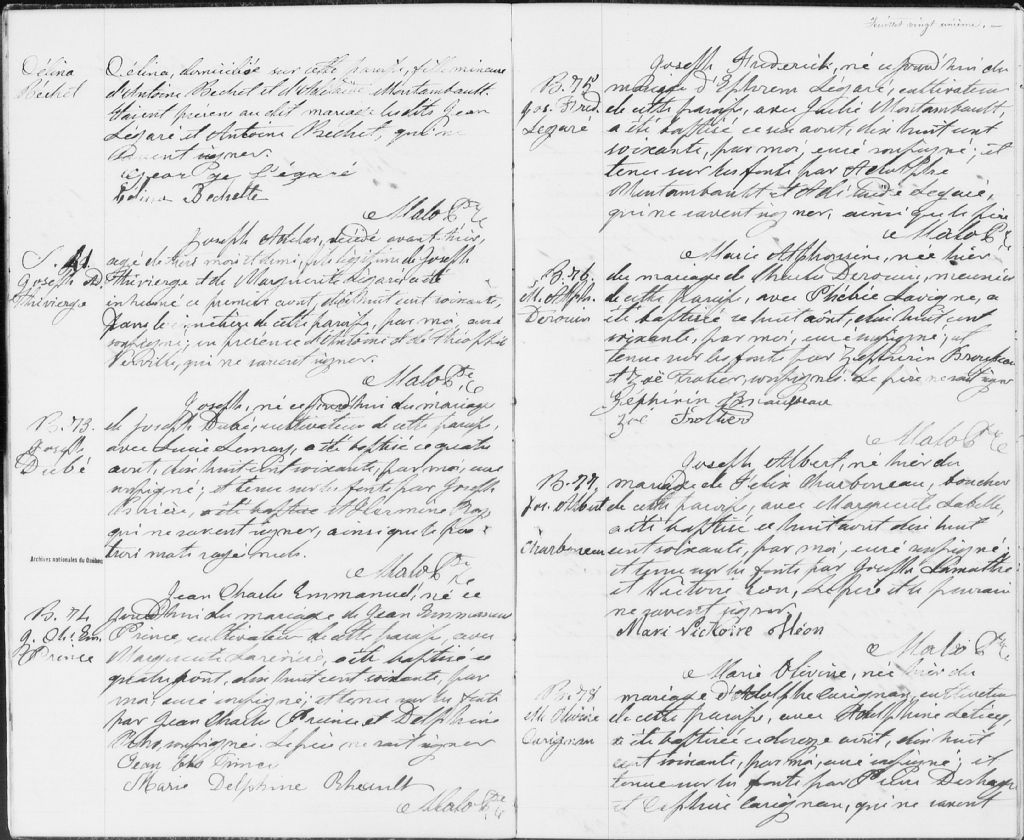 Délina
Bechet
Délina, domiciliée sur cette paroisse, fille mineure
d'Antoine Bechet et d'Adélaïde Montambault.
Etaient présens au dit mariage lesdits Jean
Légaré et Antoine Bechet, qui ne
savent signer.
George Légaré
Délina Bechette
Malo Ptre
S. 41
Joseph A
Thivierge
Joseph décédé avant hier,
agé de trois mois et demi, fils légitime de Joseph
Thivierge et de Marguerite Légaré a été
inhumé ce premier aout, dix huit cent soixante,
dans le cimetière de cette paroisse, par moi, curé
soussigné; en présence d'Antoine et de Théophile
qui ne savent signer.
Malo Ptre
B. 73.
Joseph
Dubé
Joseph, né ce jourd'hui du mariage
de Joseph Dubé, cultivateur de cette paroisse,
avec Lucie Lemay, a été baptisé ce quatre
aout, dix huit cent soixante, par moi, curé
soussigné; et tenu sur les fonts par Joseph
a été baptisé et Hermine Roy
qui ne savent signer, ainsi que le père
trois mots rayés nuls.
Malo Ptre
Archives nationales du Québec
B. 74
J. Chs Em.
Prince
Jean Charles Emmanuel, né ce
jourd'hui du mariage de Jean Emmanuel
Prince, cultivateur de cette paroisse, avec
Marguerite a été baptisé ce
quatre aout, dix huit cent soixante, par
moi, curé soussigné; et tenu sur les fonts
par Jean Charles Prince et Delphine
soussignés. Le père ne sait signer
Jean Chs Prince
Marie Delphine Rheault
Malo Ptre
Feuillet vingt unième. —
B. 75
Jos. Fred.
Légaré
Joseph Frederick, né ce jourd'hui du
mariage d'Ephrem Légaré, cultivateur
de cette paroisse, avec Julie Montambault,
a été baptisé ce six aout, dix huit cent
soixante, par moi, curé soussigné; et
tenu sur les fonts par Adolphe
Montambault et Adélaïde Légaré,
qui ne savent signer, ainsi que le père
Malo Ptre
B. 76.
M. Alph.
Derouin
Marie Alphonsine, née hier
du mariage de Charles Derouin, meunier
de cette paroisse, avec Phébée Lavigne, a
été baptisée ce huit aôut, dix huit cent
soixante, par moi, curé soussigné; et
tenue sur les fonts par Zepherin Brouseau
et Zoé Trotier, soussignés. Le père ne sait signer
Zepherin Brausseau
Zoé Trottier
Malo Ptre
B. 77.
Jos. Albert
Charboneau
Joseph Albert, né hier du
mariage de Felix Charboneau, boucher
de cette paroisse, avec Marguerite Labelle,
a été baptisé ce huit aout dix huit
cent soixante, par moi, curé soussigné;
et tenu sur les fonts par Joseph Lamothe
et Victoire Léon, Le père et le parrain
ne savent signer
Mari Vicktoire Aléon
Malo Ptre
B. 78
M. Olivine
Carignan
Marie Olivine, née hier du
mariage d'Adolphe Carignan, cultivateur
de cette paroisse, avec Adelphine
a été baptisée ce douze août, dix huit
cent soixante, par moi, curé soussigné; et
tenue sur les fonts par Pierre Deshaye
et Carignan, qui ne savent